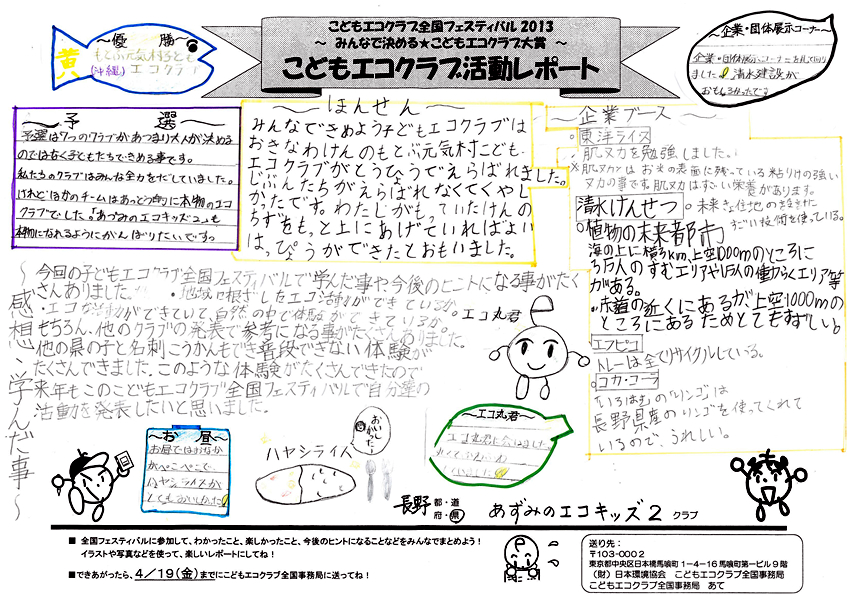 こどもエコクラブ全国フェスティバル 2013
～ みんなで決める★こどもエコクラブ大賞 ～
こどもエコクラブ活動レポート
～優 勝～
黄
もとぶ元気村こども
(沖縄)
エコクラブ
～企業・団体展示コーナー～
ました! 清水建設が
おもしろかったです
～予 選～
予選は7つのクラブがあつまり大人が決める
のではなく子どもたちできめる事です。
私たちのクラブはみんな全力をだしていました。
けれどほかのチームはあっとう的に本物のエコ
クラブでした。「あずみのエコキッズ2」も
本物になれるようにがんばりたいです。
～ほんせん～
みんなできめよう子どもエコクラブは
おきなわけんのもとぶ元気村こども
エコクラブがとうひょうでえらばれました。
じぶんたちがえらばれなくてくやし
かったです。わたしがもっていたけんの
ちずをもっと上にあげていればよい
はっぴょうができたとおもいました。
～企業ブース～
東洋ライス
肌ヌカを勉強しました。
※肌ヌカとは お米の表面に残っている粘りけの強い
ヌカの事です。肌ヌカはすごい栄養があります。
清水けんせつ
植物の未来都市
海の上に横3km、上空1000mのところに
3万人のすむエリアや1万人の働らくエリア等
がある。
・赤道の近くにあるが上空1000mの
ところにあるためとてもすずしい。
エフピコ
トレーは全てリサイクルしている。
コカ・コーラ
「いろはす」の「リンゴ」は
長野県産のリンゴを使ってくれて
いるので、うれしい。
～感想・学んだ事～
今回の子どもエコクラブ全国フェスティバルで学んだ事や今後のヒントになる事がたく
さんありました。・地域に根ざしたエコ活動ができているか。
・エコ活動ができていて、自然の中で体験ができているか。
もちろん、他のクラブの発表で参考になる事がたくさんありました。
他の県の子と名刺こうかんもでき普段できない体験が
たくさんできました。このような体験がたくさんできたので
来年もこのこどもエコクラブ全国フェスティバルで自分達の
活動を発表したいと思いました。
エコ丸君
～お 昼～
お昼ではおなか
がぺこぺこで、
ハヤシライスが
とてもおいしかった!
ハヤシライス
おいしかったー
～エコ丸君～
長野 都・道
府・県
あずみのエコキッズ2 クラブ
■ 全国フェスティバルに参加して、わかったこと、楽しかったこと、今後のヒントになることなどをみんなでまとめよう!
イラストや写真などを使って、楽しいレポートにしてね!
■できあがったら、4/19(金)までにこどもエコクラブ全国事務局に送ってね!
送り先:
〒103-0002
東京都中央区日本橋馬喰町1-4-16 馬喰町第一ビル9階
(財)日本環境協会 こどもエコクラブ全国事務局
こどもエコクラブ全国事務局 あて